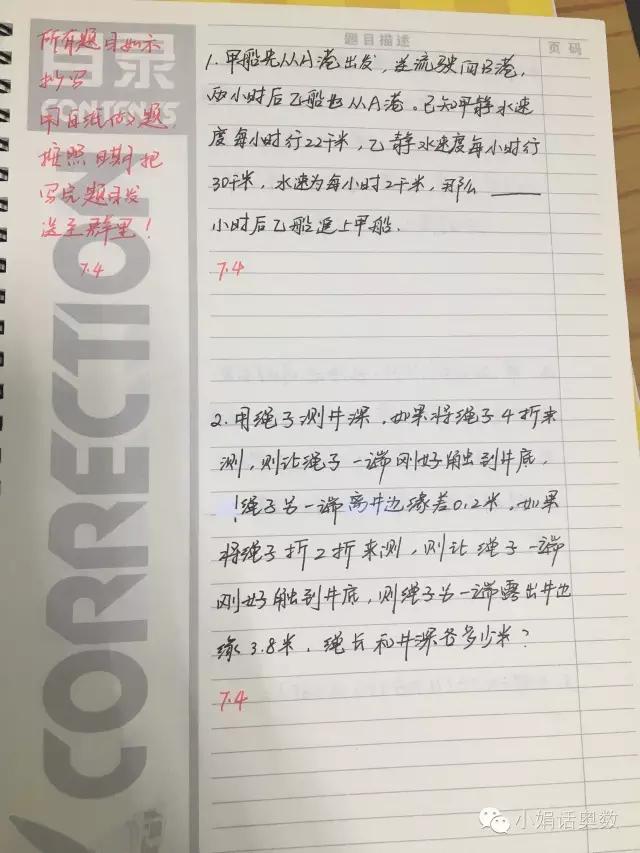 目录
CONTENTS
CORRECTION
题目描述
页码
所有题目如示
抄写
用白纸做题
按照日期把
写完题目发
送至群里！
7.4
1. 甲船先从A港出发，逆流驶向B港，
两小时后乙船也从A港。已知甲静水速
度每小时行22千米，乙静水速度每小时行
30千米，水速为每小时2千米，那么____
小时后乙船追上甲船.
7.4
2. 用绳子测井深，如果将绳子4折来
测，则让绳子一端刚好触到井底，
绳子另一端离井边缘差0.2米，如果
将绳子折2折来测，则让绳子一端
刚好触到井底，则绳子另一端露出井边
缘3.8米，绳长和井深各多少米？
7.4
小娟话奥数